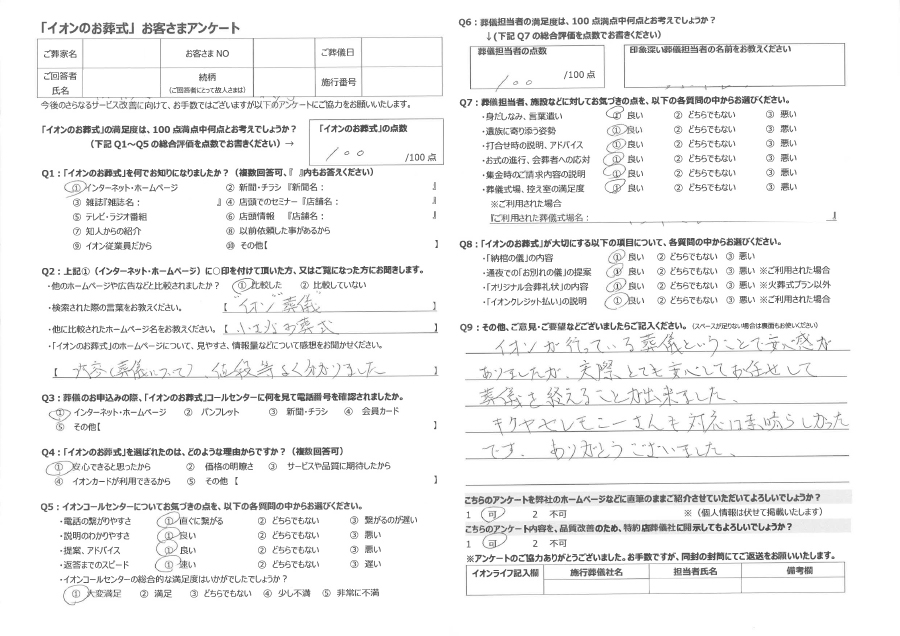 「イオンのお葬式」お客さまアンケート
ご葬家名 お客さまNO ご葬儀日
ご回答者氏名 続柄（ご回答者にとって故人さまは） 施行番号
今後のさらなるサービス改善に向けて、お手数ではございますが以下のアンケートにご協力をお願いいたします。
「イオンのお葬式」の満足度は、100点満点中何点とお考えでしょうか？
（下記Q1～Q5の総合評価を点数でお書きください）→
「イオンのお葬式」の点数
100 /100点
Q1：「イオンのお葬式」を何でお知りになりましたか？（複数回答可、『 』内もお答えください）
① インターネット・ホームページ ② 新聞・チラシ『新聞名： 』
③ 雑誌『雑誌名： 』 ④ 店頭でのセミナー『店舗名： 』
⑤ テレビ・ラジオ番組 ⑥ 店頭情報 『店舗名： 』
⑦ 知人からの紹介 ⑧ 以前依頼した事があるから
⑨ イオン従業員だから ⑩ その他【 】
Q2：上記①（インターネット・ホームページ）に○印を付けて頂いた方、又はご覧になった方にお聞きします。
・他のホームページや広告などと比較されましたか？ ① 比較した ② 比較していない
・検索された際の言葉をお教えください。 【 "イオン" "葬儀" 】
・他に比較されたホームページ名をお教えください。【 小さなお葬式 】
・「イオンのお葬式」のホームページについて、見やすさ、情報量などについて感想をお聞かせください。
【 内容（葬儀について）、値段等よく分かりました 】
Q3：葬儀のお申込みの際、「イオンのお葬式」コールセンターに何を見て電話番号を確認されましたか。
① インターネット・ホームページ ② パンフレット ③ 新聞・チラシ ④ 会員カード
⑤ その他【 】
Q4：「イオンのお葬式」を選ばれたのは、どのような理由からですか？（複数回答可）
① 安心できると思ったから ② 価格の明瞭さ ③ サービスや品質に期待したから
④ イオンカードが利用できるから ⑤ その他【 】
Q5：イオンコールセンターについてお気づきの点を、以下の各質問の中からお選びください。
・電話の繋がりやすさ ① 直ぐに繋がる ② どちらでもない ③ 繋がるのが遅い
・説明のわかりやすさ ① 良い ② どちらでもない ③ 悪い
・提案、アドバイス ① 良い ② どちらでもない ③ 悪い
・返答までのスピード ① 速い ② どちらでもない ③ 遅い
・イオンコールセンターの総合的な満足度はいかがでしたでしょうか？
① 大変満足 ② 満足 ③ どちらでもない ④ 少し不満 ⑤ 非常に不満
Q6：葬儀担当者の満足度は、100点満点中何点とお考えでしょうか？
↓（下記Q7の総合評価を点数でお書きください）
葬儀担当者の点数 印象深い葬儀担当者の名前をお教えください
100 /100点
Q7：葬儀担当者、施設などに対してお気づきの点を、以下の各質問の中からお選びください。
・身だしなみ、言葉遣い ① 良い ② どちらでもない ③ 悪い
・遺族に寄り添う姿勢 ① 良い ② どちらでもない ③ 悪い
・打合せ時の説明、アドバイス ① 良い ② どちらでもない ③ 悪い
・お式の進行、会葬者への応対 ① 良い ② どちらでもない ③ 悪い
・集金時のご請求内容の説明 ① 良い ② どちらでもない ③ 悪い
・葬儀式場、控え室の満足度 ① 良い ② どちらでもない ③ 悪い
※ご利用された場合
『ご利用された葬儀式場名： 』
Q8：「イオンのお葬式」が大切にする以下の項目について、各質問の中からお選びください。
・「納棺の儀」の内容 ① 良い ② どちらでもない ③ 悪い
・通夜での「お別れの儀」の提案 ① 良い ② どちらでもない ③ 悪い ※ご利用された場合
・「オリジナル会葬礼状」の内容 ① 良い ② どちらでもない ③ 悪い ※火葬式プラン以外
・「イオンクレジット払い」の説明 ① 良い ② どちらでもない ③ 悪い ※ご利用された場合
Q9：その他、ご意見・ご要望などございましたらご記入ください。（スペースが足りない場合は裏面もお使いください）
イオンが行っている葬儀ということで安心感が
ありましたが、実際とても安心してお任せして
葬儀を終えることが出来ました。
キクヤセレモニーさんも対応は素晴らしかった
です。ありがとうございました。
こちらのアンケートを弊社のホームページなどに直筆のままご紹介させていただいてよろしいでしょうか？
1 可 2 不可 ※（個人情報は伏せて掲載いたします）
こちらのアンケート内容を、品質改善のため、特約店葬儀社に開示してもよろしいでしょうか？
1 可 2 不可
※アンケートのご協力ありがとうございました。お手数ですが、同封の封筒にてご返送をお願いいたします。
イオンライフ記入欄 施行葬儀社名 担当者氏名 備考欄